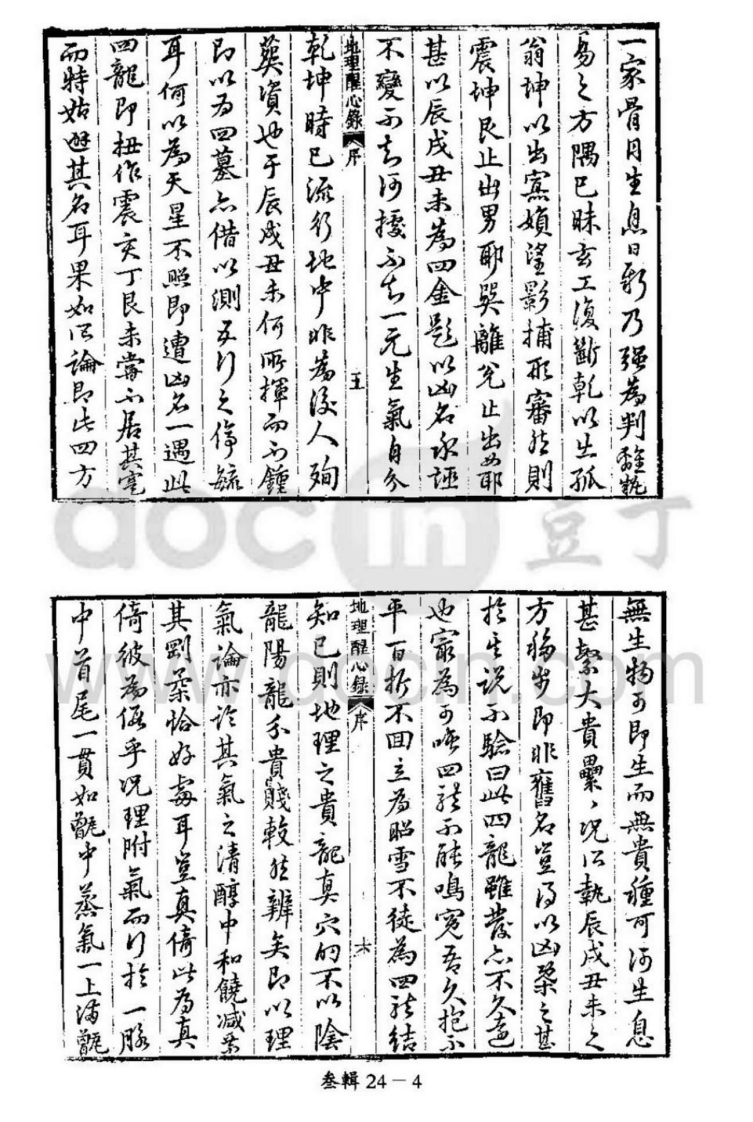 一家骨月生息日新乃强為判離執
易之方隅已昧玄工復斷乾以生孤
翁坤以出寡媍望影捕形審然則
震坤艮止出男耶巽離兌止出女耶
甚以辰戌丑未為四金題以凶名永誣
不變不知何據不知一元生氣自分
地理醒心錄 序 五
乾坤時已流行地中非為後人殉
葬資也于辰戌丑未何所揮而不鍾
即以為四墓亦借以測五行之停毓
耳何以為天星不照即遭凶名一遇此
四龍即扭作震亥丁艮未嘗不居其寔
而特姑避其名耳果如所論即此四方
無生物可即生而無貴種可何生息
甚繫大貴纍、况所執辰戌丑未之
方移步即非舊名豈得以凶槩之甚
於其說不驗曰此四龍雖發亦不久遠
也寃為可唔四龍不能鳴寃吾久抱不
平百折不回立為昭雪不徒為四龍結
地理醒心錄 序 六
知已則地理之貴龍真穴的不以陰
龍陽龍分貴賤較然辨矣即以理
氣論亦論其氣之清醇中和饒減
其剛柔恰好處耳豈真倚此為真
倚彼為偽乎况理附氣而行於一脉
中首尾一貫如甑中蒸氣一上滿甑
叁輯 24－4
docin 豆丁
www.docin.com